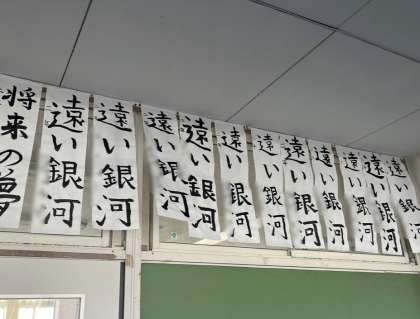 将来の夢
遠い銀河
遠い銀河
遠い銀河
遠い銀河
遠い銀河
遠い銀河
遠い銀河
遠い銀河
遠い銀河
遠い銀河
遠い銀河